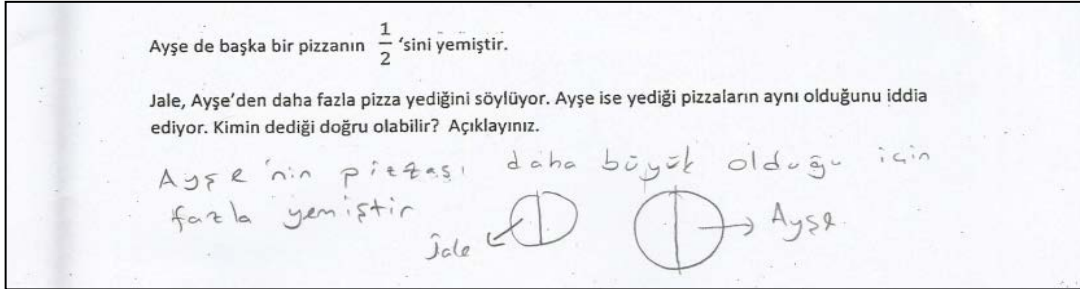 Ayşe de başka bir pizzanın 1/2 'sini yemiştir.
Jale, Ayşe'den daha fazla pizza yediğini söylüyor. Ayşe ise yediği pizzaların aynı olduğunu iddia
ediyor. Kimin dediği doğru olabilir? Açıklayınız.
Ayşe'nin pizzası daha büyük olduğu için
fazla yemiştir
Jale
Ayşe